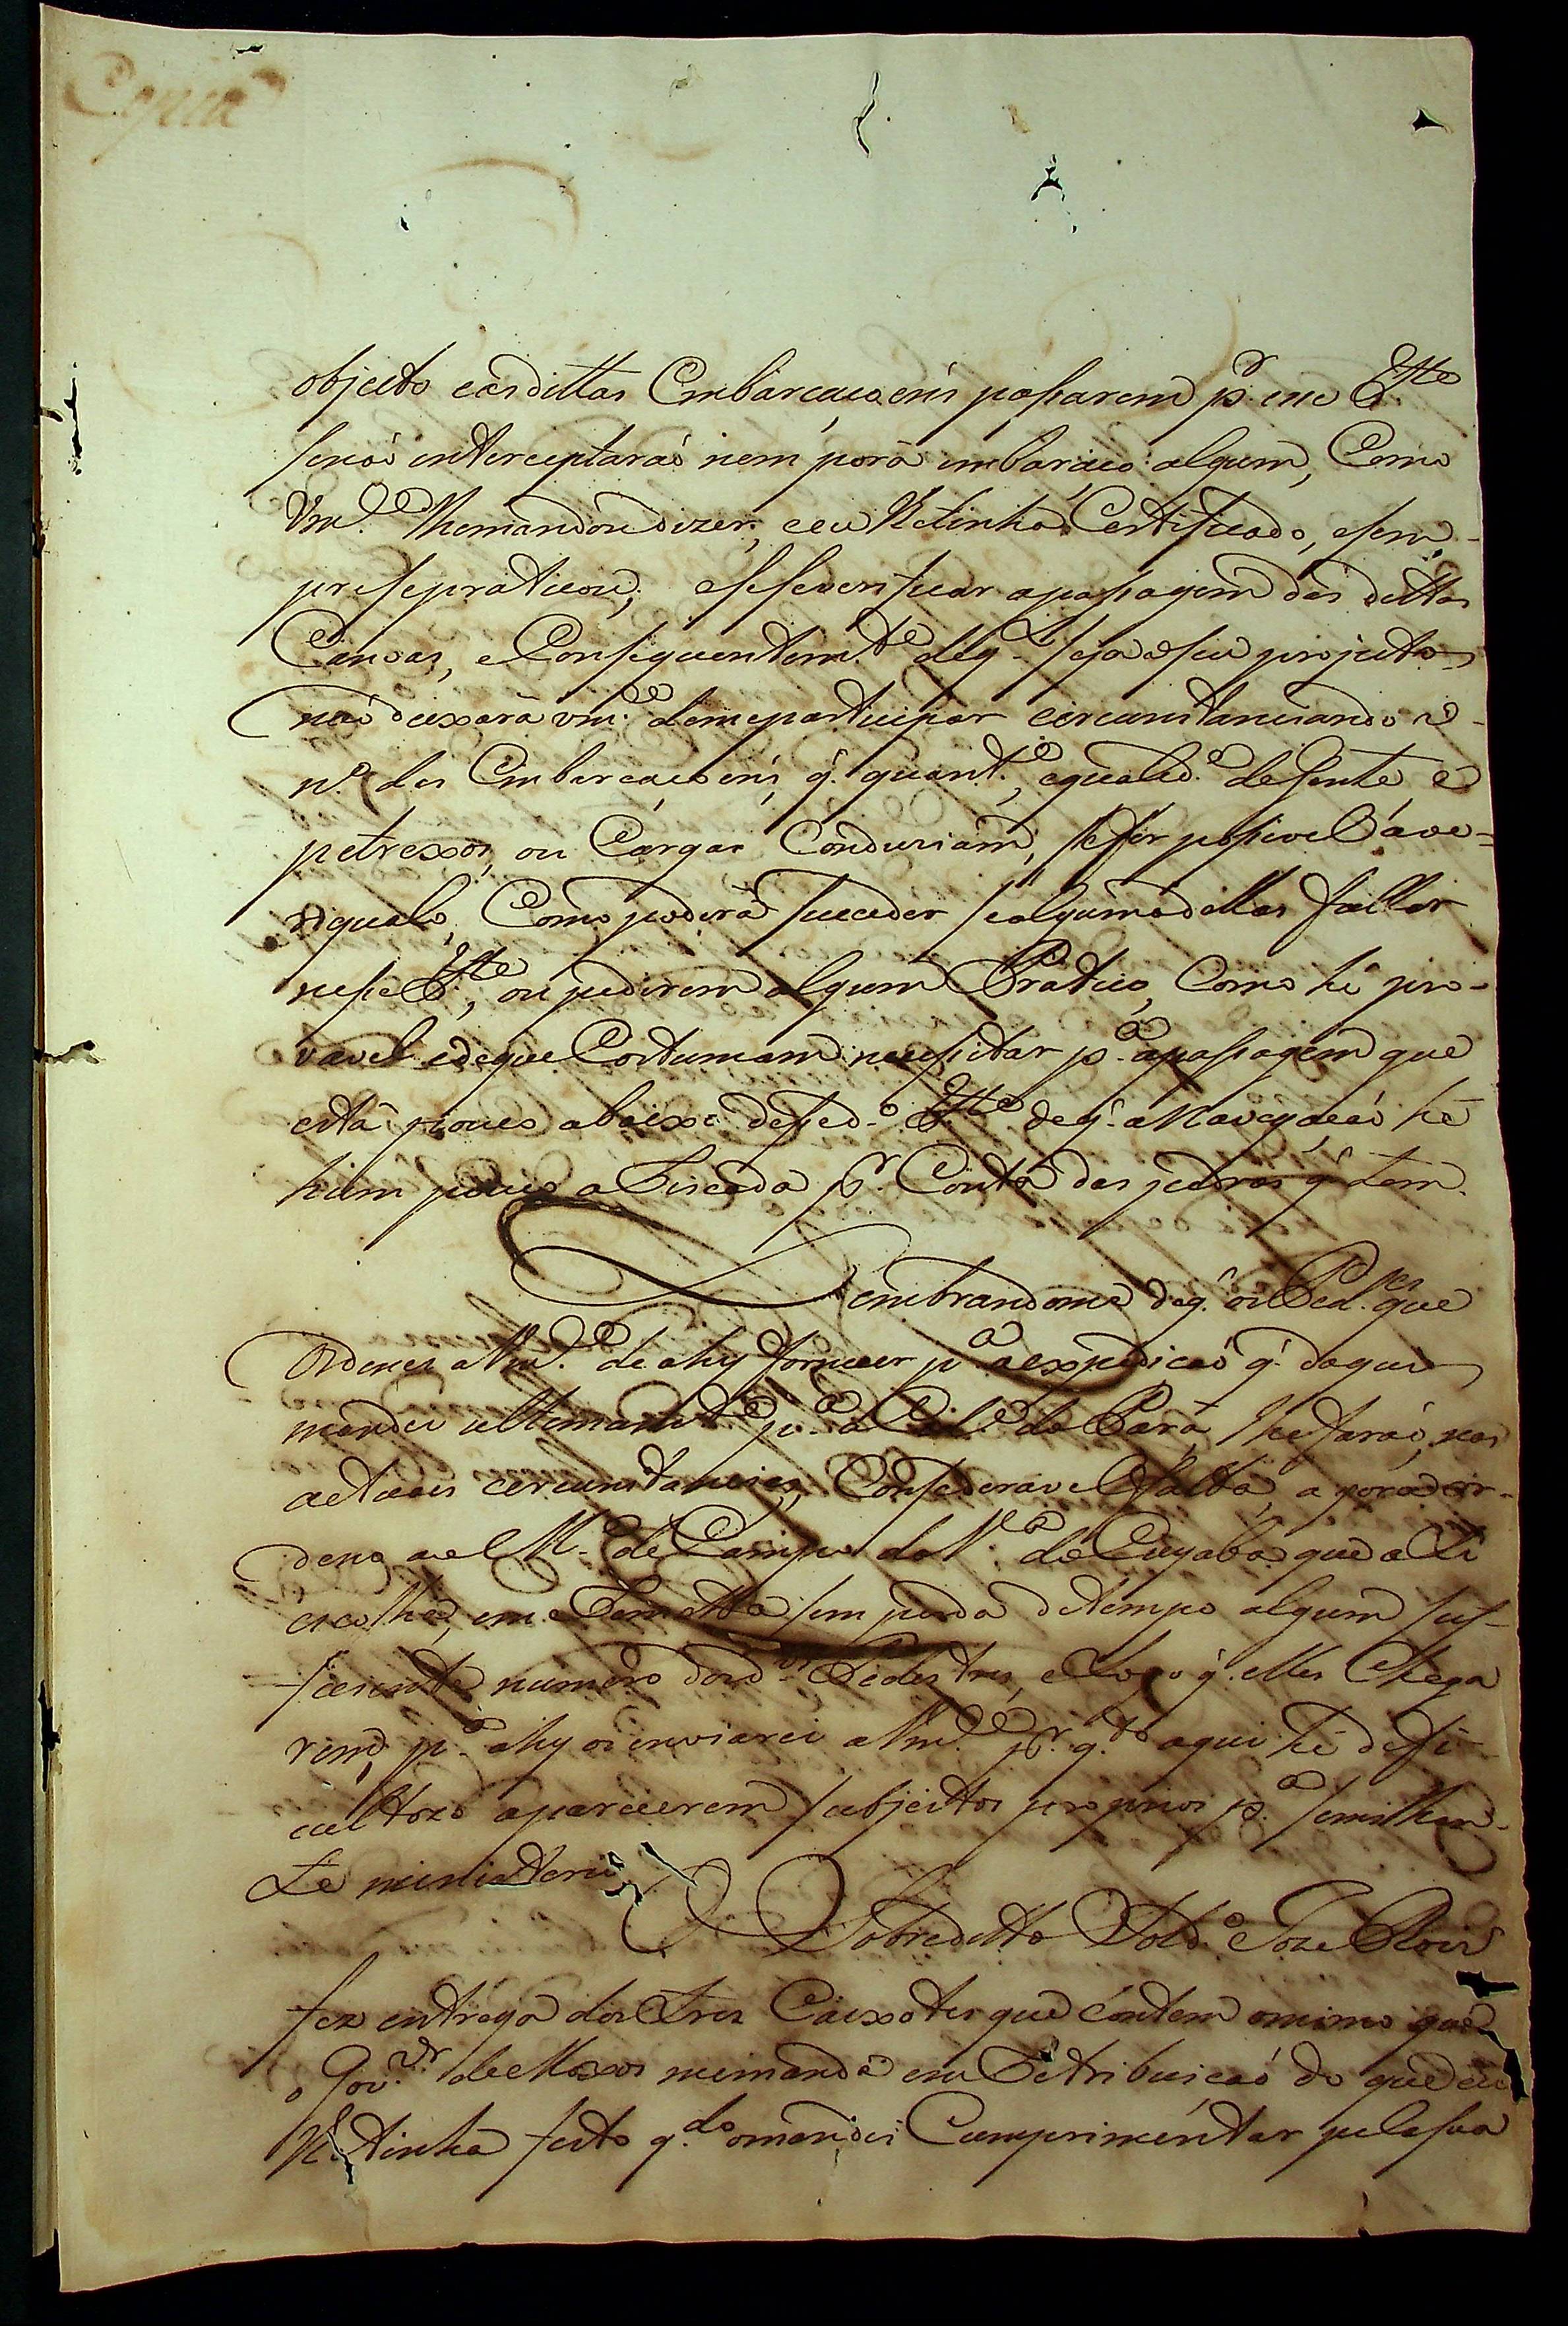 Copia
objecto e as dittas Embarcaçoens passarem p.r esse Destt.o
senaõ interceptaráõ nem porá embaraço algum, Como
Vm.ce lhemandou dizer, eeu lhetinha Certificado, esem-
pre sepraticou; esseverificar apassagem das dittas
Canoas, eConsequentem.te deq. seja oseu projecto
naõ deixará vm.ce demeparticipar circunstanciando o
n.o das Embarcaçoens, q. quant.e, equalid.e deGente, e
petrexos, ou Cargas Conduziam, sefor possivel ave-
rigualo, Como poderá suceder sealguma dellas fallar
nesse Destt.o, ou pedirem algum Pratico, Como hé pro-
vavel edeque Costumam necessitar p.a apassagem que
está pouco abaixo desse d.o Destt.o deq. a Navegaçaõ hé
hum pouco aRiscada p.r Conta das pedras q. tem.
Lembrandome deq. os Ped.es que
Ordenei a Vm.ce de ahy fornecer p.a aexpediçaõ q. daqui
mandei ultimam.te p.a a Cid.e do Pará, lhefaráõ, nas
actuaes circunstancias, Consideravel falta, a pouco or-
deno ao M.e de Campo da V.a do Cuyabá que ali
escolha, em e Remetta sem perda detempo algum suf-
ficiente numero dosd.os Pedestres, eLogo q. elles Chega
rem, p.a ahy os enviarei a Vm.ce p.r q.to aqui hé defi-
cultozo aparecerem subjeitos proprios p.a semilhan-
te ministerio.
O Sobreditto Sold.o Joze Roiz
fez entrega dos tres Caixotes que contem omimo que
o Gov.or de Moxos memanda em Retribuiçaõ do que eu
lhe tinha feito q.do omandei Cumprimentar pela sua